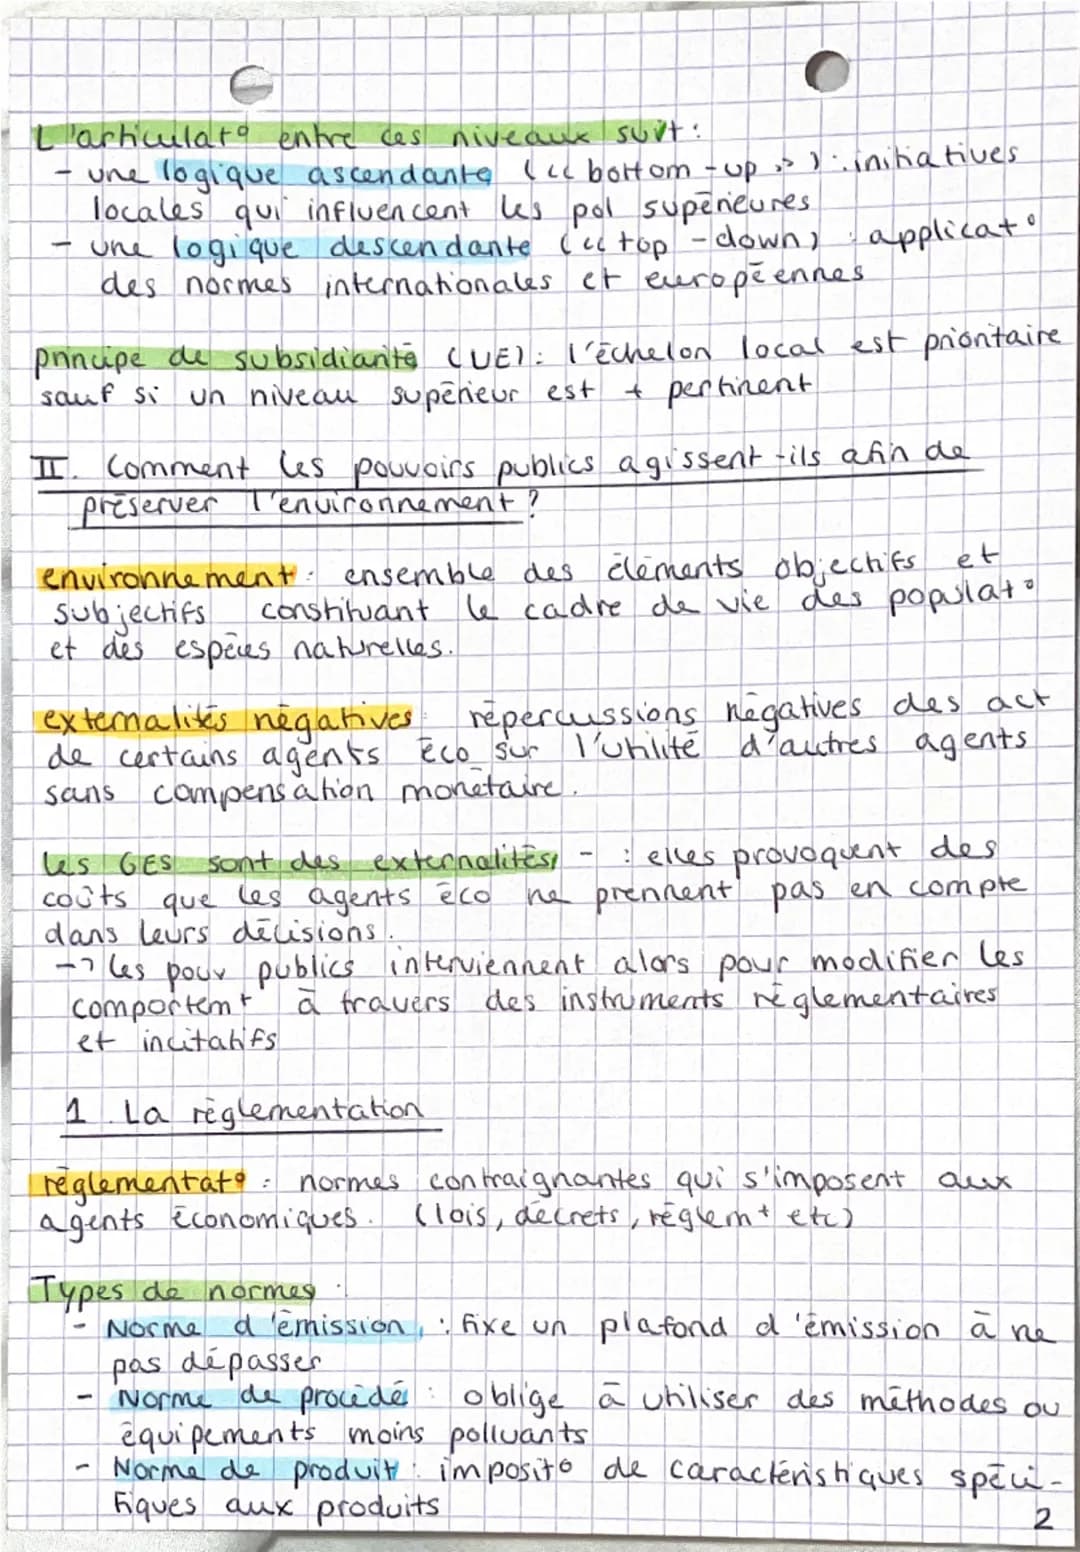 L'articulat° entre ces niveaux suit :
- une logique ascendante (« bottom-up ») : initiatives
locales qui influencent les pol supérieures
- une logique descendante (« top-down) : applicat°
des normes internationales et européennes
principe de subsidiarité (UE) : l'échelon local est prioritaire
sauf si un niveau supérieur est + pertinent
II. Comment les pouvoirs publics agissent-ils afin de
préserver l'environnement ?
environnement : ensemble des éléments objectifs et
subjectifs constituant le cadre de vie des populat°
et des espèces naturelles.
externalités négatives : répercussions négatives des act
de certains agents éco sur l'utilité d'autres agents
sans compensation monétaire.
les GES sont des externalités - : elles provoquent des
coûts que les agents éco ne prennent pas en compte
dans leurs décisions.
-> les pouv publics interviennent alors pour modifier les
comportemt à travers des instruments réglementaires
et incitatifs
1. La règlementation
réglementat° : normes contraignantes qui s'imposent aux
agents économiques. (lois, décrets, réglemt etc)
Types de normes :
- Norme d'émission : fixe un plafond d'émission à ne
pas dépasser
- Norme de procédé : oblige à utiliser des méthodes ou
équipements moins polluants
- Norme de produit : imposit° de caractéristiques spéci-
fiques aux produits
2